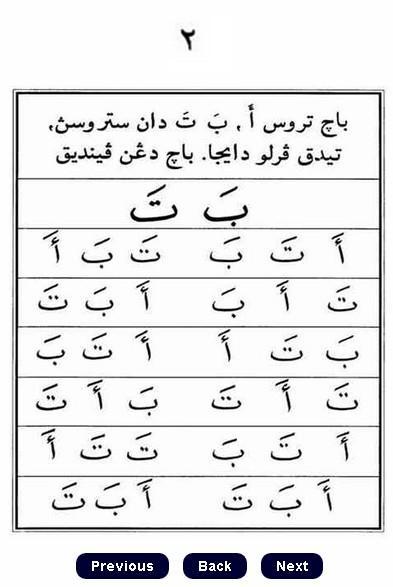 ٢
باچ تروس أَ , بَ تَ دان ستروسڽ,
تيدق ڤرلو دايجا. باچ دڠن ڤينديق
بَ تَ
أَ تَ بَ تَ بَ أَ
تَ أَ بَ أَ بَ تَ
بَ تَ أَ أَ تَ بَ
تَ أَ تَ بَ أَ تَ
أَ تَ بَ تَ تَ أَ
أَ بَ تَ أَ بَ تَ
Previous Back Next